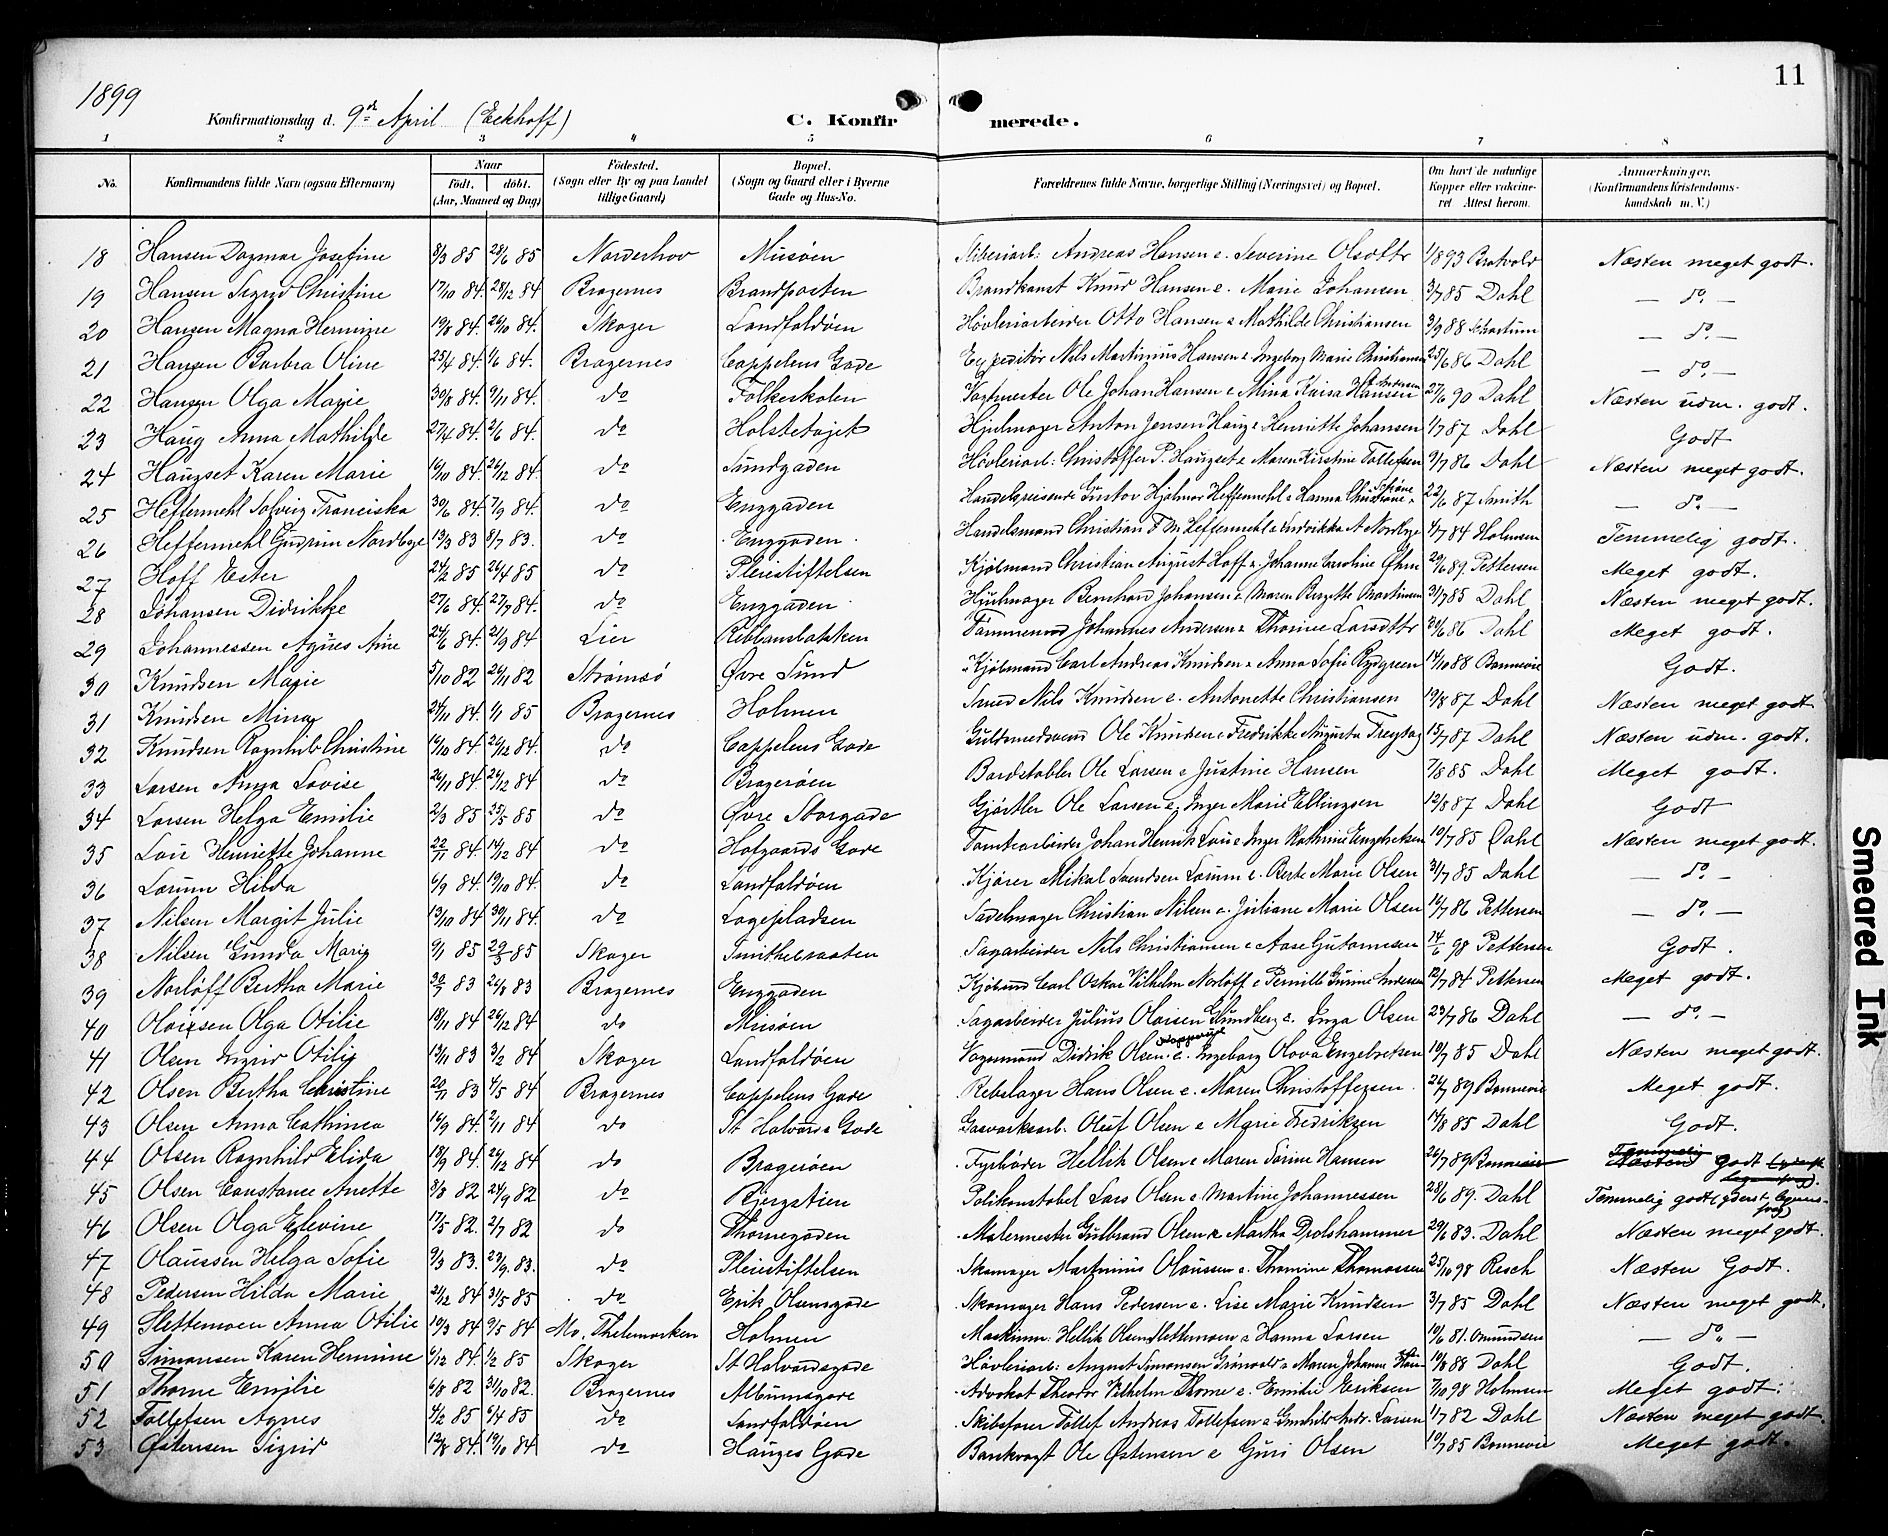 1899
11
Konfirmationsdag d. 9de April (Eckhoff)
C. Konfirmerede.
1 2 3 4 5 6 7 8
No. Konfirmandens fulde Navn (ogsaa Efternavn) Naar født. døbt. (Aar, Maaned og Dag) Fødested. (Sogn eller By og paa Landet tillige Gaard) Bopæl. (Sogn og Gaard eller i Byerne Gade og Hus-No. Forældrenes fulde Navne, borgerlige Stilling (Næringsvei) og Bopæl. Om havt de naturlige Kopper eller vakcineret Attest herom. Anmærkninger. (Konfirmandens Kristendomskundskab m. V.)
18 Hansen Dagmar Josefine 8/3 85 28/6 85 Norderhov Musøen Sliberiarb: Andreas Hansen e. Severine Olsdttr 1893 Bratvold Næsten meget godt.
19 Hansen Sigrid Christine 17/10 84. 28/12 84 Bragernes Brandposten Brandkonst Knud Hansen e. Marie Johansen 3/7 85 Dahl — do. —
20 Hansen Magna Hermine 19/8 84. 26/10 84. Skoger Landfaldøen Høvleriarbeider Otto Hansen e Mathilde Christiansen 3/9 88 Schartum — do. —
21 Hansen Barbra Oline 25/4 84. 1/6 84. Bragernes Cappelens Gade Expeditør Nils Martinius Hansen e Ingeborg Marie Christiansen 25/6 86 Dahl — do. —
22 Hansen Olga Marie 30/8 84. 9/11 84. do Folkeskolen Vagtmester Ole Johan Hansen e Mina Kaisa Hansen f. Andersen 27/6 90 Dahl Næsten udm. godt.
23 Haug Anna Mathilde 27/4 84. 2/6 84. do Holstetøjet Hjulmager Anton Jensen Haug e Henriette Johansen 1/7 87 Dahl Godt
24 Haugset Karen Marie 16/10 84. 26/12 84. do Sundgaden Høvleriarb: Christoffer P. Haugset e Maren Kirstine Tollefsen 9/7 86 Dahl Næsten meget godt.
25 Heffermehl Solveig Franciska 30/6 84. 7/9 84. do Enggaden Handelsreisende Gustav Hjalmar Heffermehl e Hanna Christiane 22/6 87 Smith — do. —
26 Heffermehl Gudrun Nordbye 13/3 83 8/7 83. do Enggaden Handelsmand Christian F M Heffermehl e Fredrikke A Nordbye 4/7 84 Holmsen Temmelig godt.
27 Hoff Ester 24/2 85 26/4 85 do Pleiestiftelsen Kjøbmand Christian August Hoff e. Johanne Caroline Øhrn 29/6 89. Pettersen Meget godt.
28 Johansen Didrikke 27/6 84. 27/7 84. do Enggaden Hjulmager Bernhard Johansen e Maren Birgette Martinsen 31/7 85 Dahl Næsten meget godt.
29 Johannessen Agnes Aine 24/6 84. 21/9 84 Lier Ribbansbakken Tømmermd Johannes Andersen e Thorine Larsdttr 20/6 86 Dahl Meget godt.
30 Knudsen Marie 5/10 82 26/11 82 Strømsø Øvre Sund Kjøbmand Carl Andreas Knudsen e Anna Sofie Rydgreen 14/10 88 Bonnevie Godt.
31 Knudsen Mina 24/11 84. 1/1 85 Bragernes Holmen Smed Nils Knudsen e. Antonette Christiansen 19/8 87 Dahl Næsten meget godt
32 Knudsen Ragnhild Christine 16/10 84 26/12 84. do Cappelens Gade Guldsmedsvend Ole Knudsen e Fredrikke Augusta Freytag 15/7 87 Dahl Næsten udm. godt.
33 Larsen Anna Lovise 26/11 84. 26/12 84 do Bragerøen Bordstabler Ole Larsen e Justine Hansen 7/8 85 Dahl Meget godt.
34 Larsen Helga Emilie 2/3 85 25/5 85 do Øvre Storgade Gjørtler Ole Larsen e. Inger Marie Ellingsen 12/8 87 Dahl Godt
35 Lau Henriette Johanne 22/11 84. 14/12 84 do Hofgaards Gade Tomtearbeider Johan Henrik Lau e Inger Kathrine Engebretsen 10/7 85 Dahl Næsten meget godt.
36 Lorum Hilda 6/9 84. 19/10 84. do Landfaldøen Kjører Mikal Svendsen Lorum e. Berte Marie Olsen 31/7 85 Dahl — do. —
37 Nilsen Margit Julie 13/10 84 30/11 84. do Lagepladsen Sadelmager Christian Nilsen e. Juliane Marie Olsen 16/7 86 Pettersen — do. —
38 Nilsen Gunda Marie 9/1 85 29/3 85 Skoger Smithebraaten Sagarbeider Nils Christiansen e Aase Gutormsen 14/6 98 Pettersen Godt.
39 Norløff Bertha Marie 30/7 83 26/8 83 Bragernes Enggaden Kjøbmd Carl Oskar Vilhelm Norløff e Pernille Gurine Andersen 12/7 84 Pettersen Meget godt.
40 Olaisen Olga Otilie 18/11 84 26/12 84 do Musøen Sagarbeider Julius Olaisen Glundberg e. Inga Olsen 23/7 86 Dahl — do. —
41 Olsen Ingrid Otilie 13/11 83 3/2 84 Skoger Landfaldøen Vognmand Didrik Olsen e. Ingeborg Olava Engebretsen 10/7 85 Dahl Næsten meget godt.
42 Olsen Bertha Christine 20/11 83 4/5 84 Bragernes Cappelens Gade Rebslager Hans Olsen e. Maren Christoffersen 26/7 89 Bonnevie Meget godt.
43 Olsen Anna Cathinca 16/9 84. 2/11 84 do St Halvards Gade Gasværksarb. Oluf Olsen e Marie Fredriksen 14/8 85 Dahl Godt.
44 Olsen Ragnhild Elida 18/9 84. 26/12 84. do Bragerøen Fyrbøder Hellik Olsen e Maren Sørine Hansen 26/7 89 Bonnevie Temmelig godt
45 Olsen Constance Anette 3/8 82 24/9 82 do Bjergstien Politikonstabel Lars Olsen e Martine Johannessen 28/6 89. Dahl Temmelig godt
46 Olsen Olga Edevine 17/5 82. 2/7 82 do Thornegaden Malermester Gulbrand Olsen e Martha Drolshammer 29/6 83. Dahl Næsten meget godt.
47 Olaussen Helga Sofie 9/3 83. 23/9 83. do Pleiestiftelsen Skomager Martinius Olaussen e. Thomine Thomassen 25/10 98 Resch Næsten Godt.
48 Pedersen Hilda Marie 21/12 84 31/5 85 do Erik Olsensgade Skomager Hans Pedersen e. Lise Marie Knudsen 3/7 85 Dahl Næsten meget godt.
49 Slettemoen Anna Otilie 19/3 84 9/5 84 Mo, Thelemarken Holmen Maskinm: Hellik Olsen Slettemoen e Hanna Larsen 10/6 81. Omundsen — do. —
50 Simonsen Karen Hermine 6/12 84. 1/2 85 Skoger St Halvardsgade Høvleriarb: August Simonsen Grönvold e Maren Johanne 10/8 88 Dahl Godt.
51 Thorne Emilie 6/8 82 31/10 82. Bragernes Albumsgade Advokat Theodor Vilhelm Thorne e. Emilie Eriksen 7/10 98 Holmsen Meget godt.
52 Tollefsen Agnes 4/2 85 6/4 85 do Landfaldøen Skibsfører Tollef Andreas Tollefsen e Gunhild Andr. Larsen 1/7 82 Dahl Næsten meget godt.
53 Østensen Sigrid 12/8 84. 19/10 84 do Hauges Gade Bankvagt Ole Østensen e Guri Olsen 10/7 85 Bonnevie Meget godt.
Smeared Ink